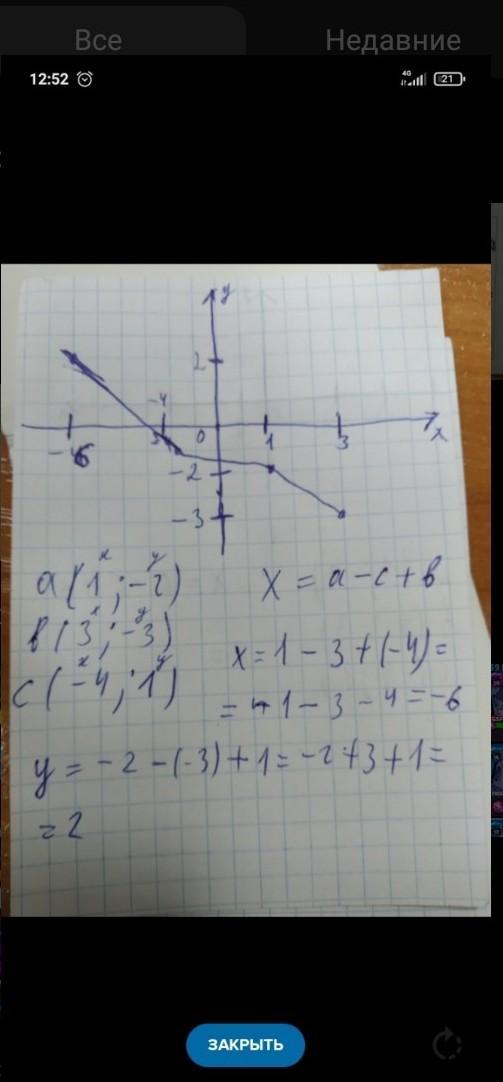 Все Недавние
12:52 4G 21
y
2
-4
-6 0 1 3 x
-2
-3
x y
a(1;-2) X = a-c+b
x y
b(3;-3)
x = 1-3+(-4)=
x y
c(-4;1)
= 1-3-4=-6
y = -2-(-3)+1=-2+3+1=
=2
ЗАКРЫТЬ